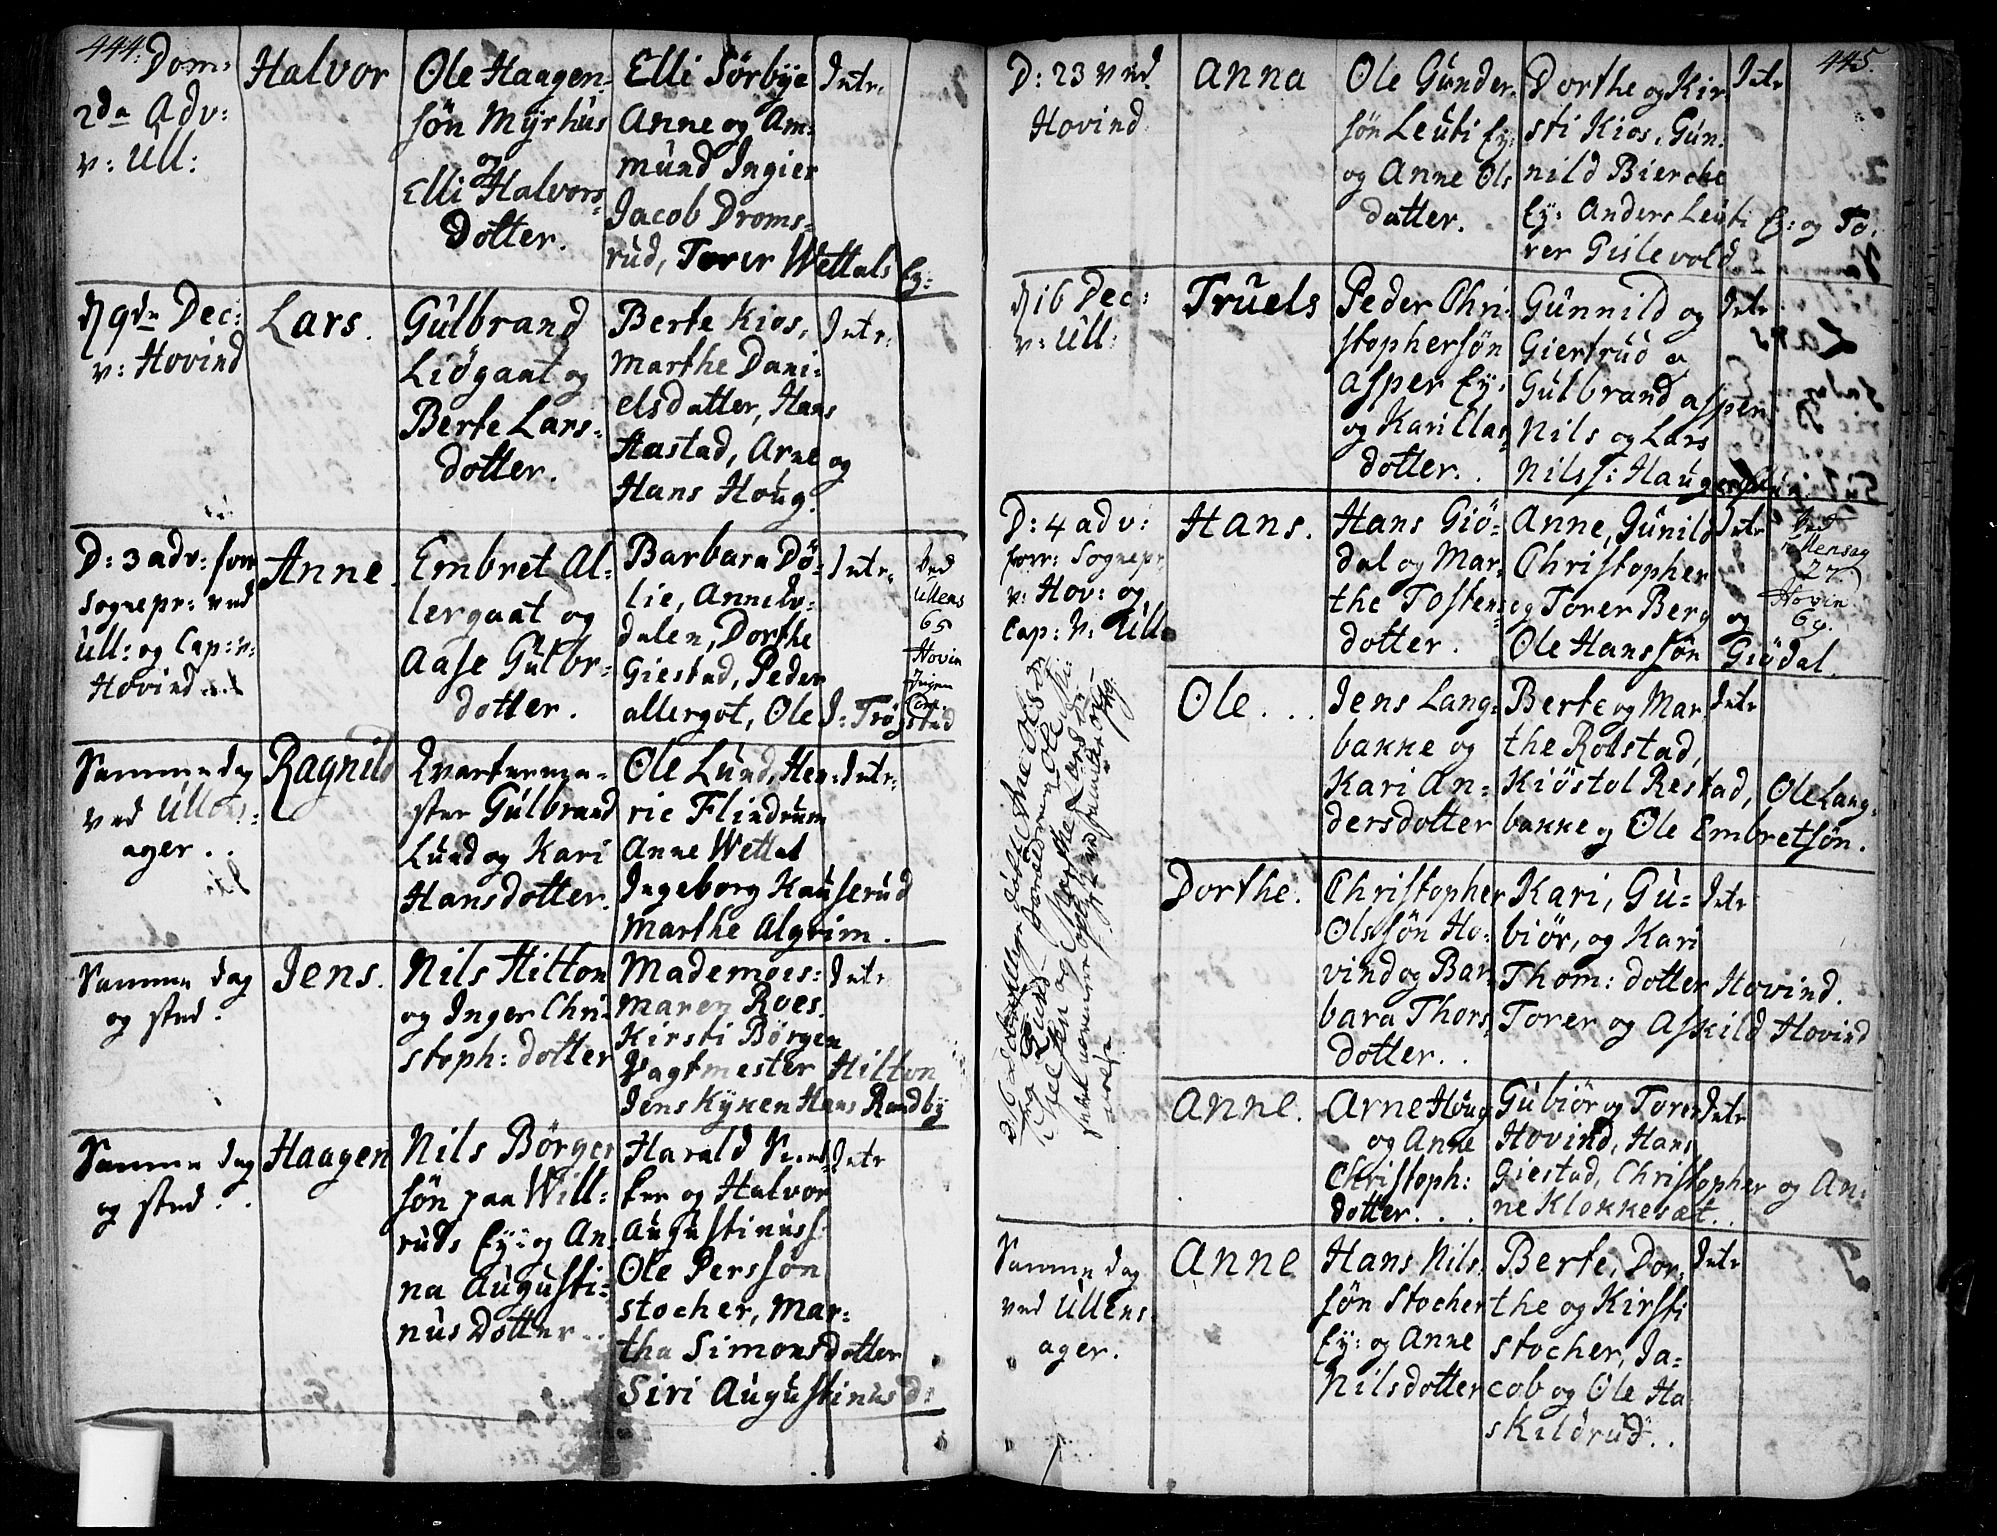 444.
Dom:
2da Adv:
v: Ull:
Halvor
Ole Haagen-
søn Myrhus
og
Elli Halvors-
Dotter.
Elli Sørbye
Anne og Am-
mund Ingier
Jacob Droms-
rud, Torer Wettals Ey:
Intr.
9de Dec:
v: Hovind
Lars.
Gulbrand
Liøgaat og
Berte Lars-
dotter.
Berte Kios,
Marthe Dani-
elsdatter, Hans
Hastad, Arne og
Hans Houg.
Intr.
D: 3 adv: forr
Sognepr: ved
Ull: og Cap: v:
Hovind
Anne.
Embret Al-
lergaat og
Aase Gulbr-
dotter.
Barbara Dø-
lie, Anne
dalen, Dorthe
Giestad, Peder
allergot, Ole I: Trøgstad
Intr.
Ved
Ullens
65
Hovin
Ingen
Com.
Samme dag
ved Ullens-
ager..
Ragnild
Qvarterme-
ster Gulbrand
Lund og Kari
Hansdotter.
Ole Lund, Hen-
ric Flindrum
Anne Wettal
Ingeborg Kauserud
Marthe Algrim.
Intr.
Samme dag
og sted.
Jens.
Nils Hilton
og Inger Chri-
stoph: dotter
Mademois:
Maren Roes.
Kirsti Børgen
Vagtmester Hilton
Jens Kyken Hans Randby
Intr
Samme dag
og sted..
Haagen
Nils Børger
søn paa Will-
ruds Ey: og An-
na Augusti-
nusDotter..
Harald
og Halvor
Augustinuss.
Ole Perssøn
stocher, Mar-
tha Simonsdotter
Siri Augustinusd:
Intr
445.
D: 23 ved
Hovind
Anna
Ole Gunder-
søn Leuti Ey:
og Anne Ols
datter.
Dorthe og Kir-
sti Kios, Gun-
nild Bierche
Ey: Anders Leuti Ey: og To-
rer Gislevold
Intr
16 Dec:
v: Ull:
Truels
Peder Chri-
stophersøn
Asper Ey:
og Kari Clas
dotter..
Gunnild og
Giertrud og
Gulbrand Asper
Nils og Lars
Nilss: Haug
Intr
D: 4 adv:
forr: Sognepr
v: Hov: og
Cap: v: Ull.
Hans.
Hans Giø-
dal og Mar-
the Tosten-
dotter.
Anne, Gunild
Christopher
og Torer Berg og
Ole Hanssøn Giødal.
Intr
Ved
Ullensag
27.
Hovin
69.
Ole...
Jens Lang-
bakke og
Kari An-
dersdotter
Berte og Mar
the Robstad,
Kiøstol Restad, Ole Lang-
bakke og Ole Embretsøn.
Intr
Dorthe.
Christopher
Olssøn Ho-
vind og Bar-
bara Thors
dotter..
Kari, Gu-
biør, og Kari
Thom: dotter Hovind.
Torer og Askild Hovind
Intr
Anne.
Arne Houg
og Anne
Christoph:
dotter...
Gubiør og Torer
Hovind, Hans
Giestad, Christopher og An-
ne Klokkesæt..
Intr
Samme dag
ved Ullens-
ager.
Anne
Hans Nils-
søn Stocher
Ey: og Anne
Nilsdotter
Berte, Dor-
the og Kirsti
stocher, Ja-
cob og Ole Ha-
skildrud..
Intr